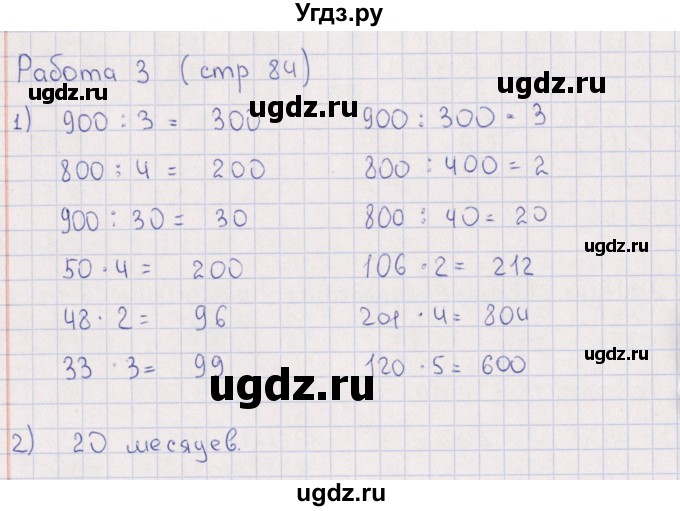 Угдз.ру
Работа 3 (стр 84)
ugdz.ru ugdz.ru
1) 900 : 3 = 300 900 : 300 = 3
ugdz.ru
800 : 4 = 200 800 : 400 = 2
900 : 30 = 30 800 : 40 = 20
ugdz.ru ugdz.ru
50 · 4 = 200 106 · 2 = 212
48 · 2 = 96 201 · 4 = 804
ugdz.ru
33 · 3 = 99 120 · 5 = 600
ugdz.ru
2) 20 месяцев.
ugdz.ru
ugdz.ru